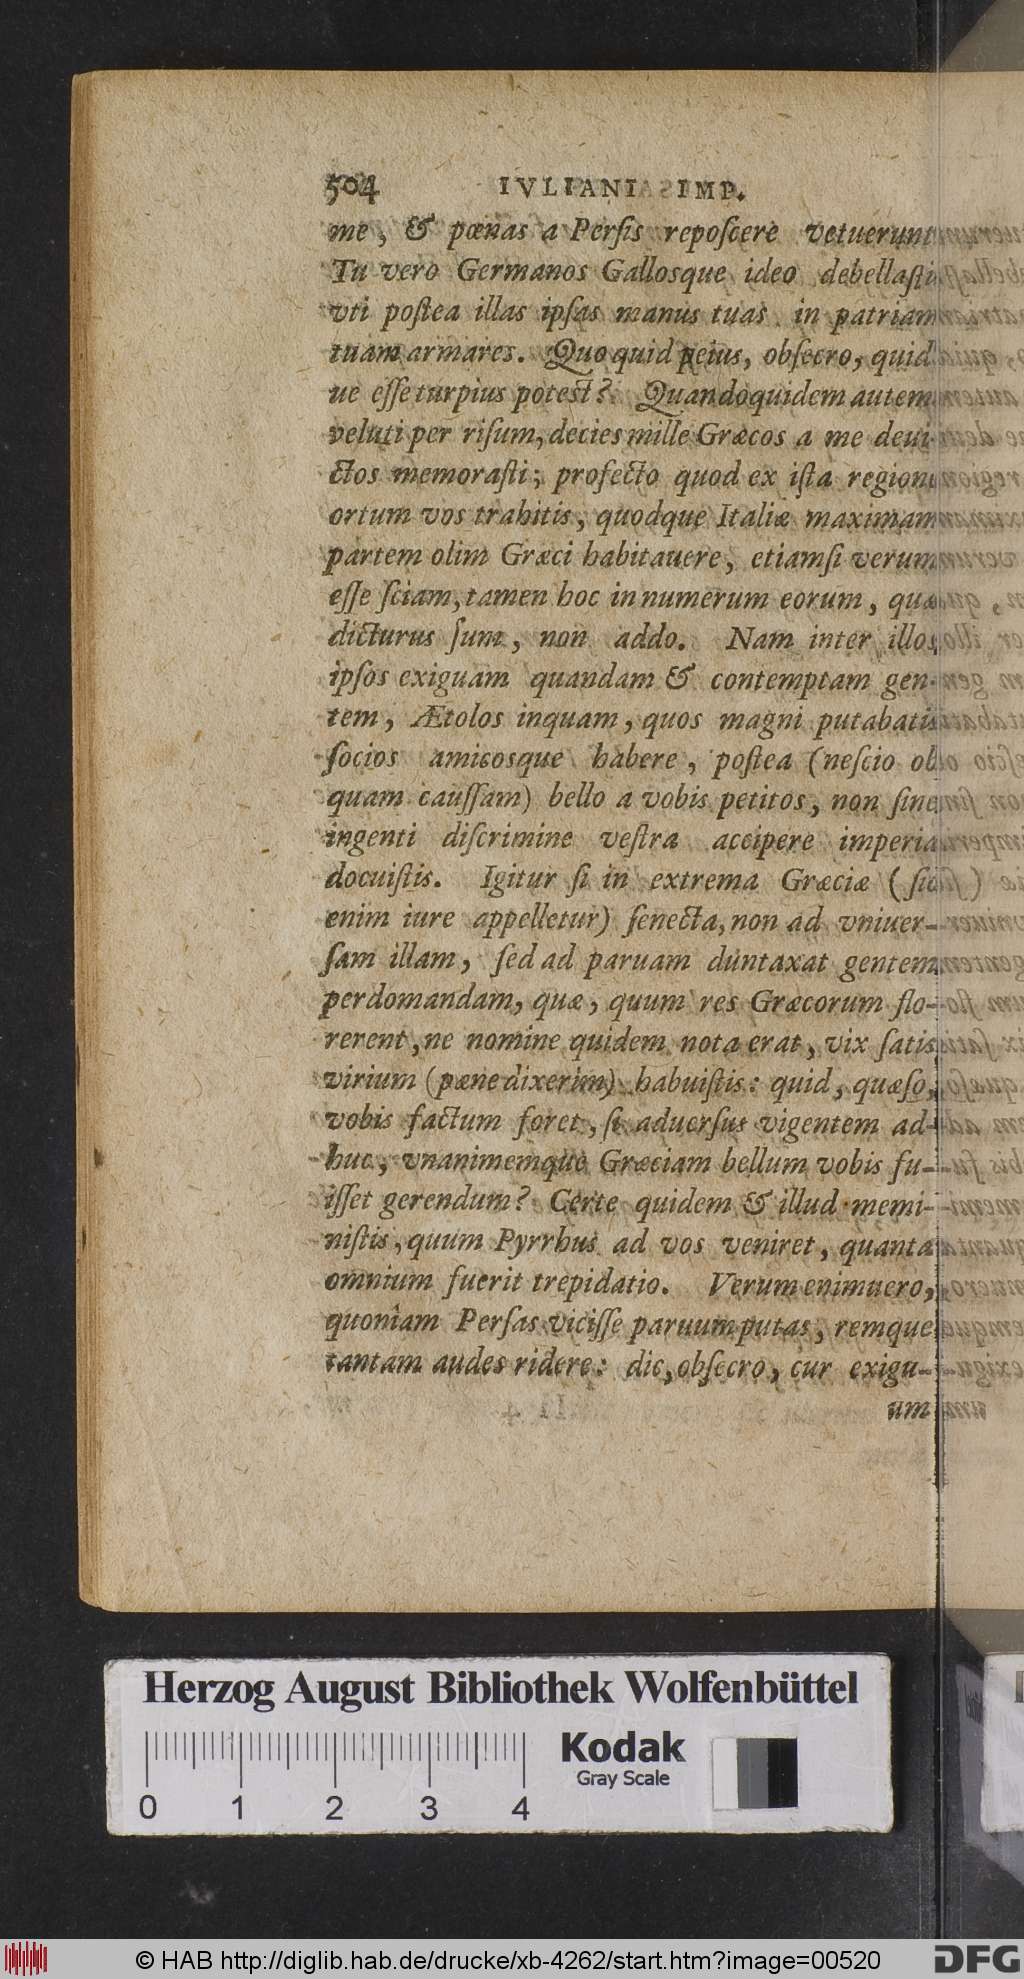 504 IVLIANI IMP.
me, & pœnas a Persis reposcere vetuerunt
Tu vero Germanos Gallosque ideo debellasti
vti postea illas ipsas manus tuas in patriam
tuam armares. Quo quid peius, obsecro, quid
ue esse turpius potest? Quandoquidem autem
veluti per risum, decies mille Græcos a me deui-
ctos memorasti; profecto quod ex ista regione
ortum vos trahitis, quodque Italiæ maximam
partem olim Græci habitauere, etiamsi verum
esse sciam, tamen hoc in numerum eorum, quæ
dicturus sum, non addo. Nam inter illos
ipsos exiguam quandam & contemptam gen-
tem, Ætolos inquam, quos magni putabatis
socios amicosque habere, postea (nescio ob
quam caussam) bello a vobis petitos, non sine
ingenti discrimine vestra accipere imperia
docuistis. Igitur si in extrema Græciæ (sic
enim iure appelletur) senecta, non ad vniuer-
sam illam, sed ad paruam duntaxat gentem
perdomandam, quæ, quum res Græcorum flo-
rerent, ne nomine quidem nota erat, vix satis
virium (pæne dixerim) habuistis: quid, quæso,
vobis factum foret, si aduersus vigentem ad-
huc, vnanimemque Græciam bellum vobis fu-
isset gerendum? Certe quidem & illud memi-
nistis, quum Pyrrhus ad vos veniret, quanta
omnium fuerit trepidatio. Verum enimuero,
quoniam Persas vicisse paruum putas, remque
tantam audes ridere: dic, obsecro, cur exigu-
um
Herzog August Bibliothek Wolfenbüttel
Kodak
Gray Scale
0 1 2 3 4
© HAB http://diglib.hab.de/drucke/xb-4262/start.htm?image=00520
DFG